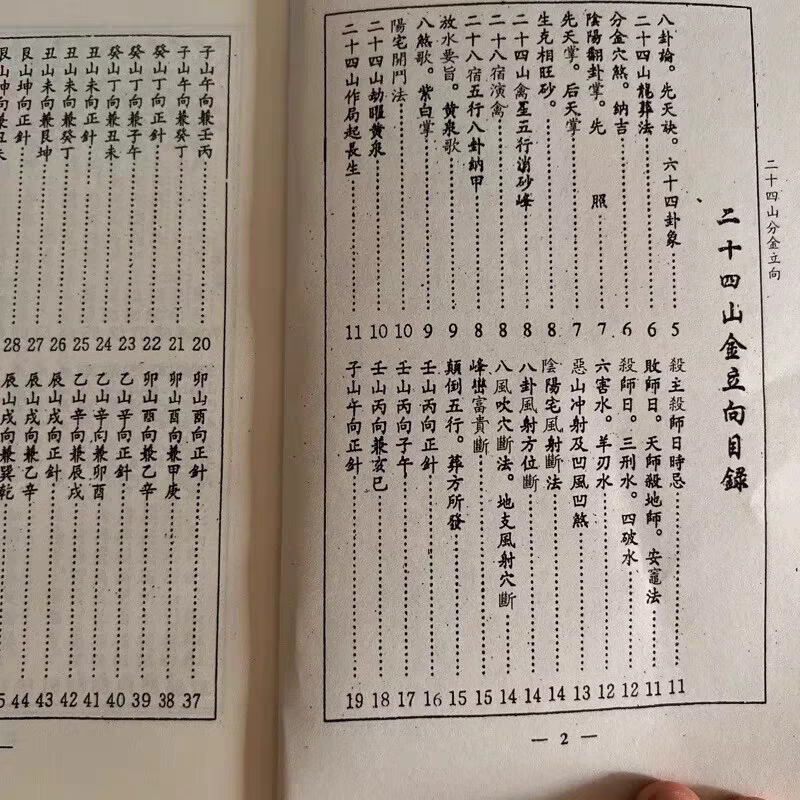 二十四山分金立向
二十四山金立向目錄
八卦論。先天訣。六十四卦象…………5
二十四山龍葬法…………6
分金穴煞。納吉…………6
陰陽翻卦掌。先 照…………7
先天掌。后天掌…………7
生克相旺砂。…………8
二十四山禽星五行消砂峰…………8
二十八宿演禽…………8
二十八宿五行八卦納甲…………8
放水要旨。黄泉歌…………9
八煞歌。紫白掌…………9
陽宅開門法…………10
二十四山劫曜黄泉…………10
二十四山作局起長生…………11
殺主殺師日時忌…………11
敗師日。天師殺地師。安竈法…………11
殺師日。三刑水。四破水…………12
六害水。羊刃水…………12
惡山冲射及凹風凹煞…………13
陰陽宅風射斷法…………14
八卦風射方位斷…………14
八風吹穴斷法。地支風射穴斷…………14
峰巒富貴斷…………15
顛倒五行。葬方所發…………15
壬山丙向正針…………16
壬山丙向子午…………17
壬山丙向兼亥巳…………18
子山午向正針…………19
— 2 —
子山午向兼壬丙…………20
子山午向兼癸丁…………21
癸山丁向正針…………22
癸山丁向兼子午…………23
癸山丁向兼丑未…………24
丑山未向正針…………25
丑山未向兼癸丁…………26
丑山未向兼艮坤…………27
艮山坤向正針…………28
艮山坤向兼丑未…………
卯山酉向正針…………37
卯山酉向兼甲庚…………38
卯山酉向兼乙辛…………39
乙山辛向正針…………40
乙山辛向兼卯酉…………41
乙山辛向兼辰戌…………42
辰山戌向正針…………43
辰山戌向兼乙辛…………44
辰山戌向兼巽乾…………5